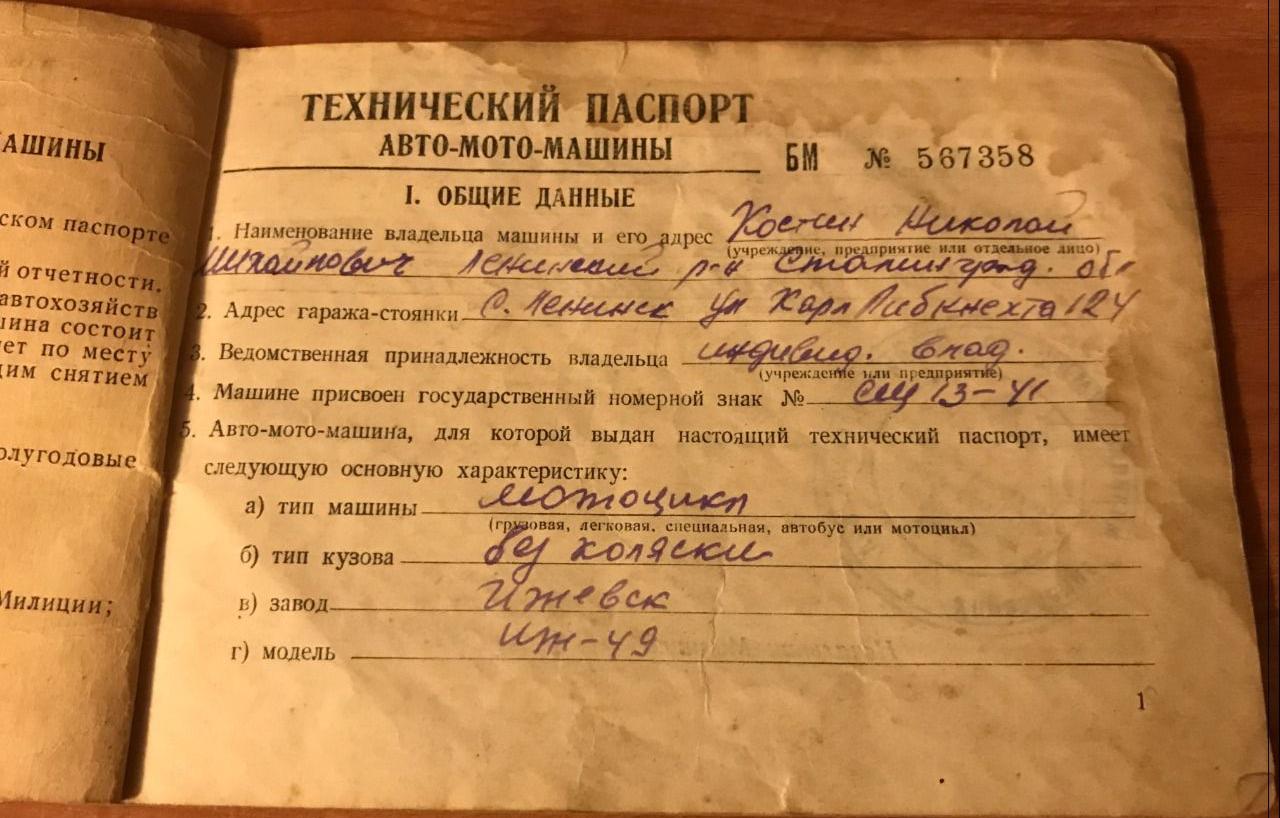 АШИНЫ
ском паспорте
й отчетности.
автохозяйств
шина состоит
ет по месту
щим снятием
олугодовые
Милиции;
ТЕХНИЧЕСКИЙ ПАСПОРТ
АВТО-МОТО-МАШИНЫ
БМ № 567358
I. ОБЩИЕ ДАННЫЕ
1. Наименование владельца машины и его адрес Костин Николай
(учреждение, предприятие или отдельное лицо)
Михайлович Ленинский р-н Сталинград. обл
2. Адрес гаража-стоянки С. Ленинск ул Карл Либкнехта 124
3. Ведомственная принадлежность владельца индивид. влад.
(учреждение или предприятие)
4. Машине присвоен государственный номерной знак № СЩ 13-41
5. Авто-мото-машина, для которой выдан настоящий технический паспорт, имеет
следующую основную характеристику:
а) тип машины мотоцикл
(грузовая, легковая, специальная, автобус или мотоцикл)
б) тип кузова без коляски
в) завод Ижевск
г) модель ИЖ-49
1